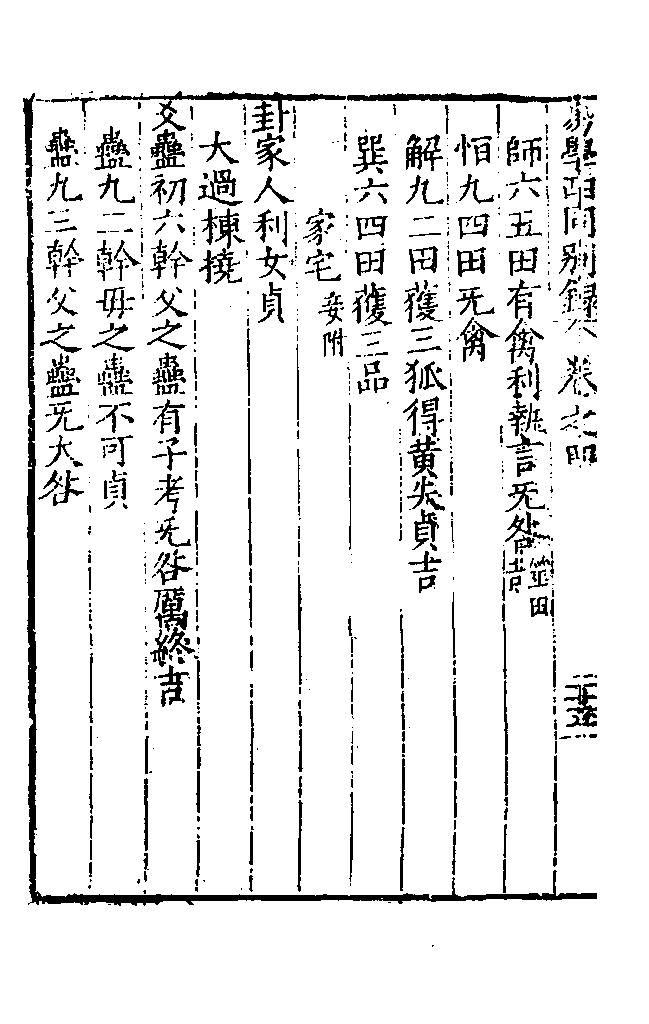 易學中同別錄 卷之四
師六五田有禽利執言旡咎筮田吉
恒九四田旡禽
解九二田獲三狐得黃矢貞吉
巽六四田獲三品
家宅妾附
卦家人利女貞
大過棟撓
爻蠱初六幹父之蠱有子考旡咎厲終吉
蠱九二幹毋之蠱不可貞
蠱九三幹父之蠱旡大咎